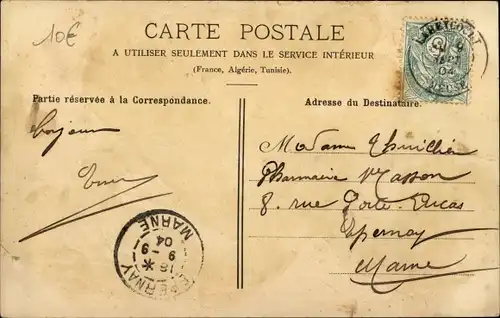 10€
CARTE POSTALE
A UTILISER SEULEMENT DANS LE SERVICE INTÉRIEUR
(France, Algérie, Tunisie).
Partie réservée à la Correspondance.
Adresse du Destinataire.
bonjour
Madame Thuillier
Pharmacie Masson
8 rue Porte Lucas
Epernay
Marne
EPERNAY
MARNE
18
9 - 9
04
MEUSE